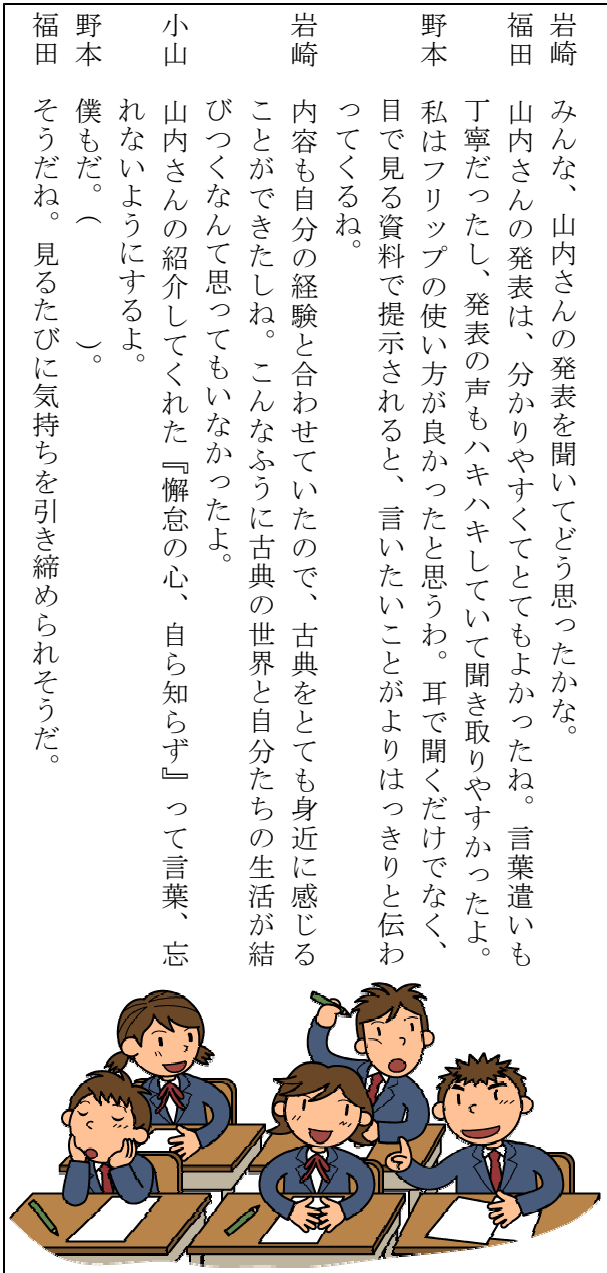 岩崎 みんな、山内さんの発表を聞いてどう思ったかな。
福田 山内さんの発表は、分かりやすくてとてもよかったね。言葉遣いも
丁寧だったし、発表の声もハキハキしていて聞き取りやすかったよ。
野本 私はフリップの使い方が良かったと思うわ。耳で聞くだけでなく、
目で見る資料で提示されると、言いたいことがよりはっきりと伝わ
ってくるね。
岩崎 内容も自分の経験と合わせていたので、古典をとても身近に感じる
ことができたしね。こんなふうに古典の世界と自分たちの生活が結
びつくなんて思ってもいなかったよ。
小山 山内さんの紹介してくれた『懈怠の心、自ら知らず』って言葉、忘
れないようにするよ。
野本 僕もだ。（　　　）。
福田 そうだね。見るたびに気持ちを引き締められそうだ。